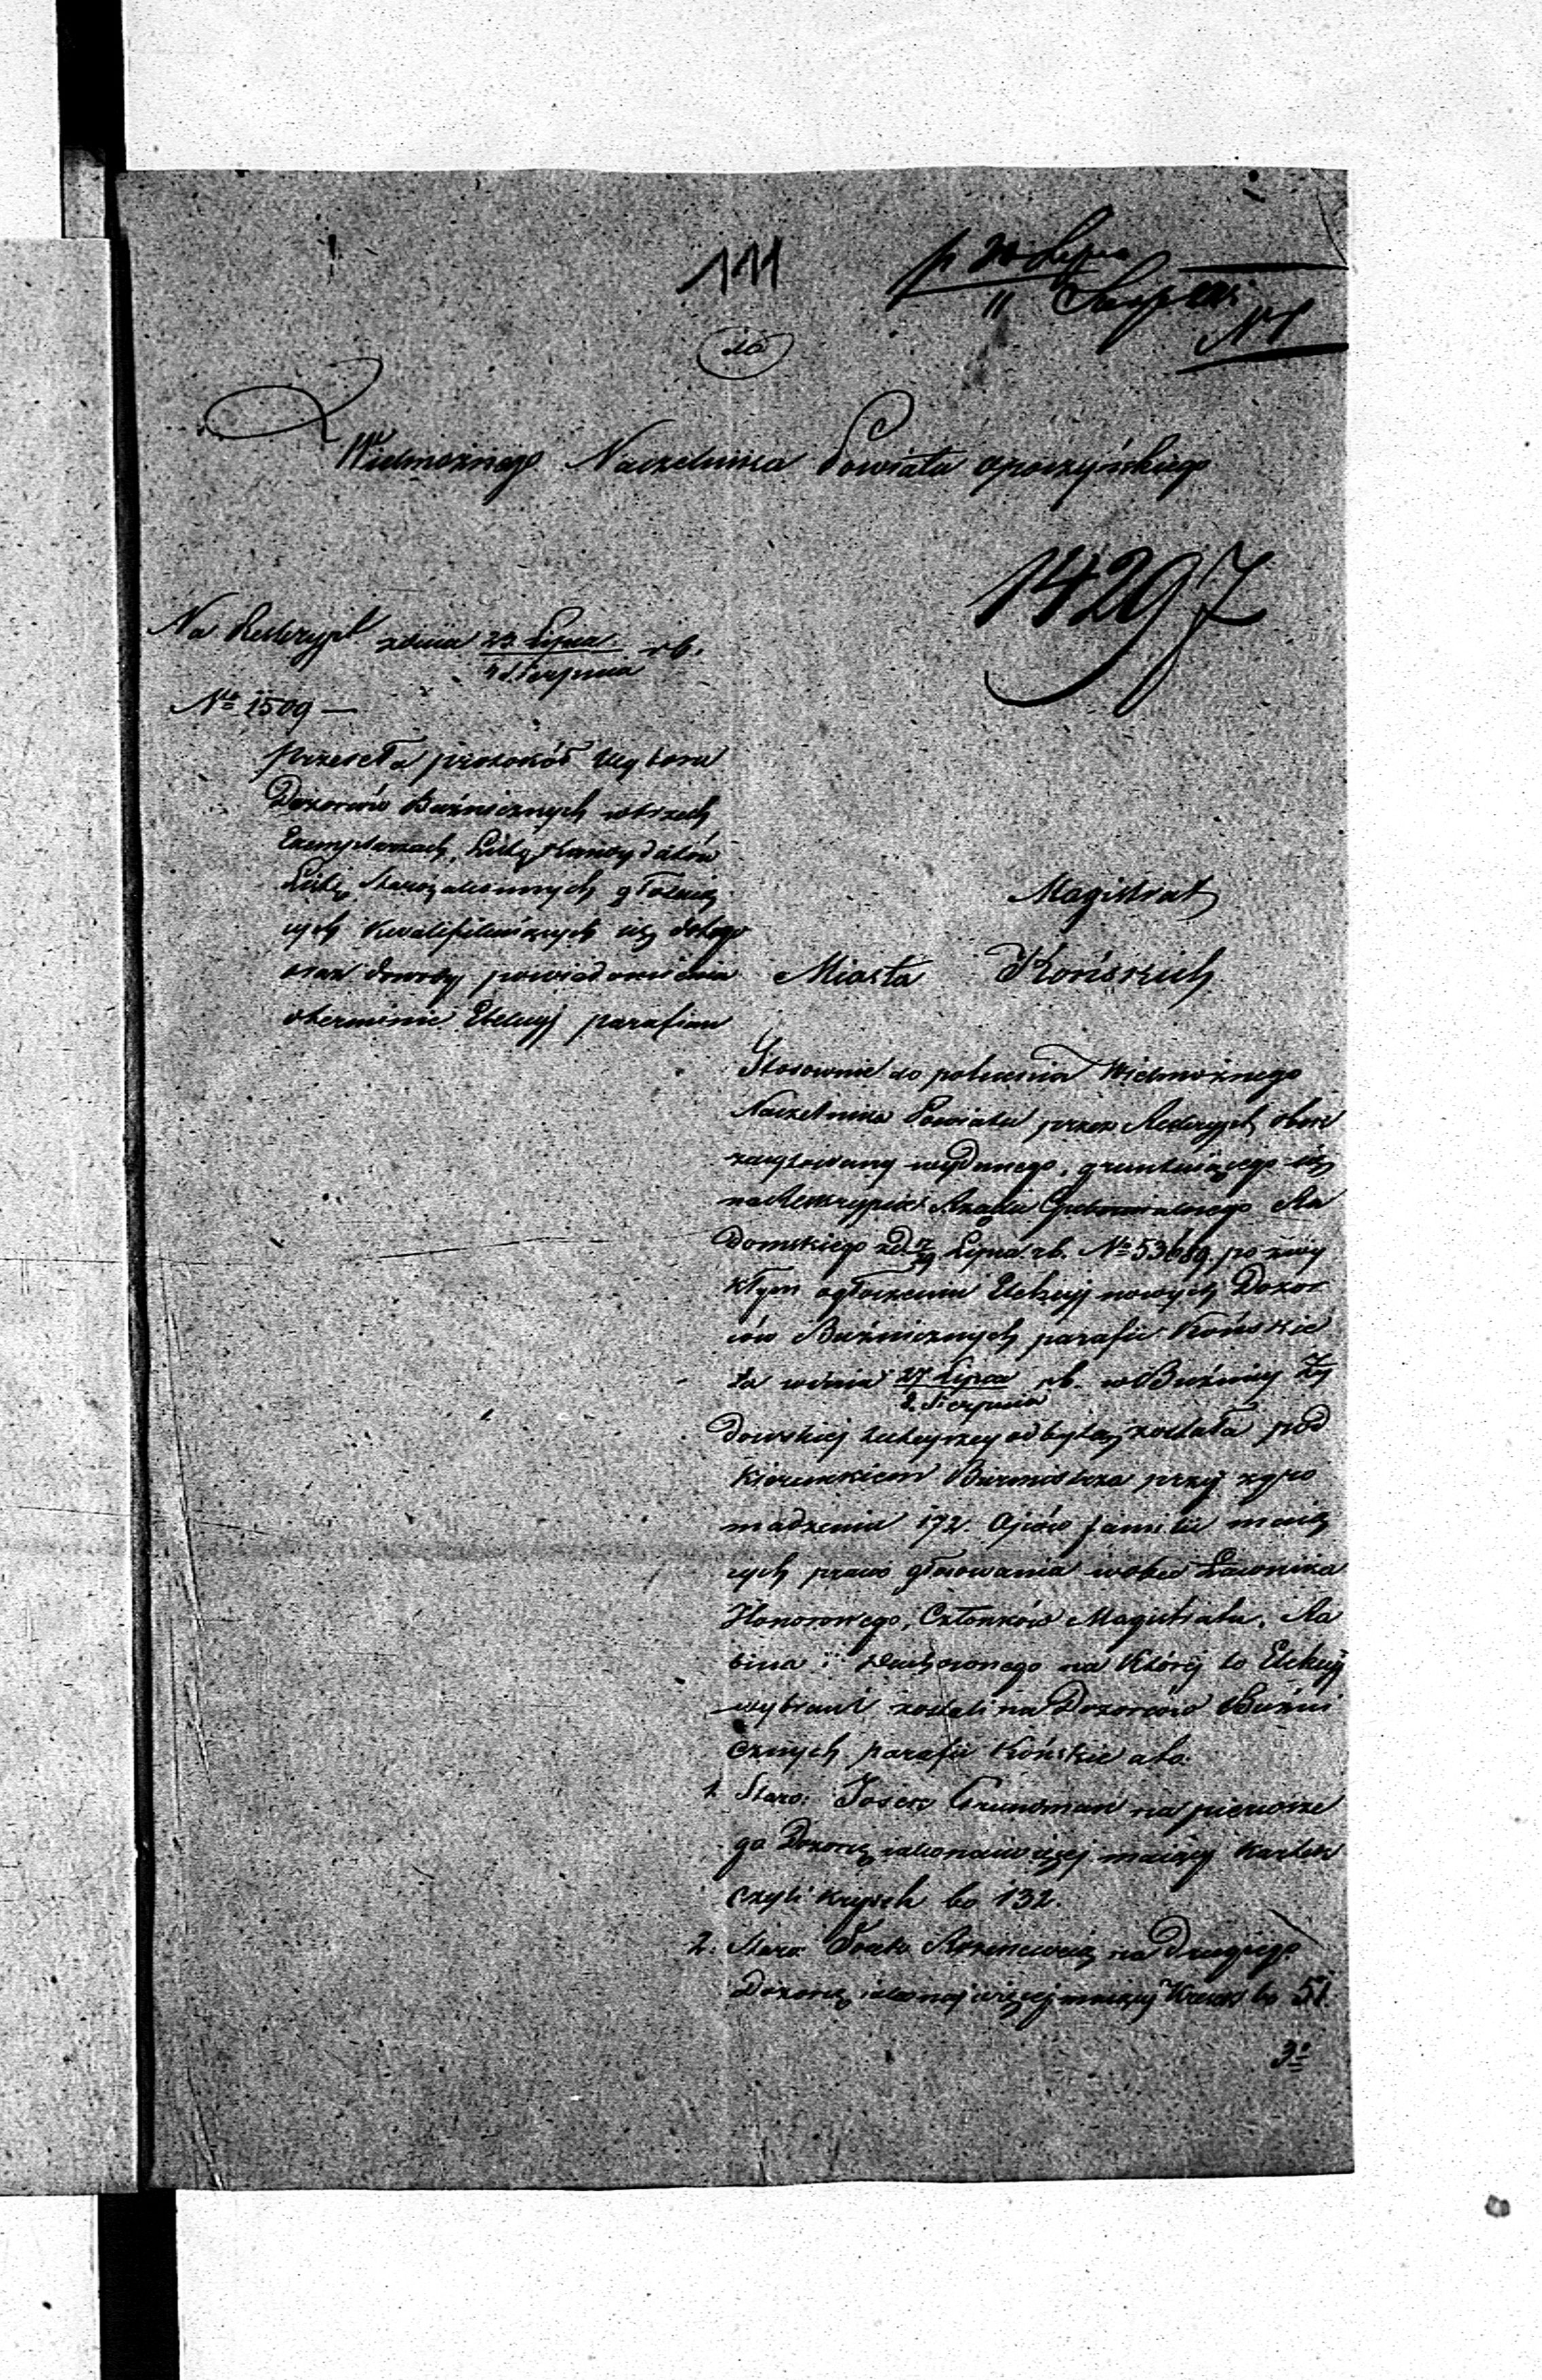 111
p 30 Lipca
11 Sierpnia
do
Wielmożnego Naczelnika Powiatu Opoczyńskiego
14297
Na Reskrypt z dnia 23 Lipca
4 Sierpnia rb.
No 1509 —
przeseła protokół Wyboru
Dozorców Bużnicznych wtrzech
Exemplarzach, Listę Kandydatów
Listę Starozakonnych głosuią
cych kwalifikuiących się dotego
oraz dowody powiadomienia
oterminie Elekcyj parafian
Magistrat
Miasta Końskich
Stosownie do polecenia Wielmożnego
Naczelnika Powiatu przez Reskrypt obok
zacytowany wydanego, gruntuiącego się
na Reskrypcie Rządu Gubernialnego Ra
domskiego zd. Lipca rb. No 53689 po zwy
kłym ogłoszeniu Elekcyj nowych Dozor
ców Bużnicznych parafii Końskie
ta wdniu 27 Lipca
Sierpnia rb. w Bużnicy Ży
dowskiej tuteyszey odbytą została pod
kierunkiem Burmistrza przy zgro
madzeniu 172. Oyców familii maią
cych prawo głosowania wobec Ławnika
Honorowego, Członków Magistratu, Ra
bina i na Której to Elekcyj
wybrani zostali na Dozorców Bużni
cznych parafii Końskie ato.
1. Staro: Josek Grundman na pierwsze
go Dozorcę iako naiwięcej maiący kartek
czyli krysek bo 132.
2. Staro: na drugiego
Dozorcę iako naj więcej maiący Kresek bo 51.
3o